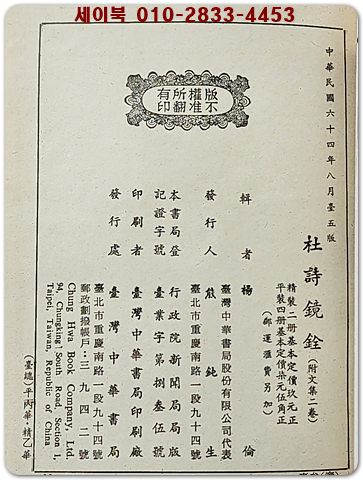 세이북 010-2833-4453
中華民國六十四年八月臺五版
杜詩鏡銓(附文集二卷)
精裝二册基本定價玖元正
平裝四册基本定價柒元伍角正
(郵運滙費另加)
輯者 楊倫
臺灣中華書局股份有限公司代表
發行人 熊鈍生
臺北市重慶南路一段九十四號
本書局登記證字號 行政院新聞局局版
臺業字第捌叁伍號
印刷者 臺灣中華書局印刷廠
臺北市重慶南路一段九十四號
發行處 臺灣中華書局
郵政劃撥帳戶:三九四二號
Chung Hwa Book Company, Ltd.
94, Chungking South Road, Section 1,
Taipei, Taiwan Republic of China
版權所有
不准翻印
(臺總)平丙華·精乙華